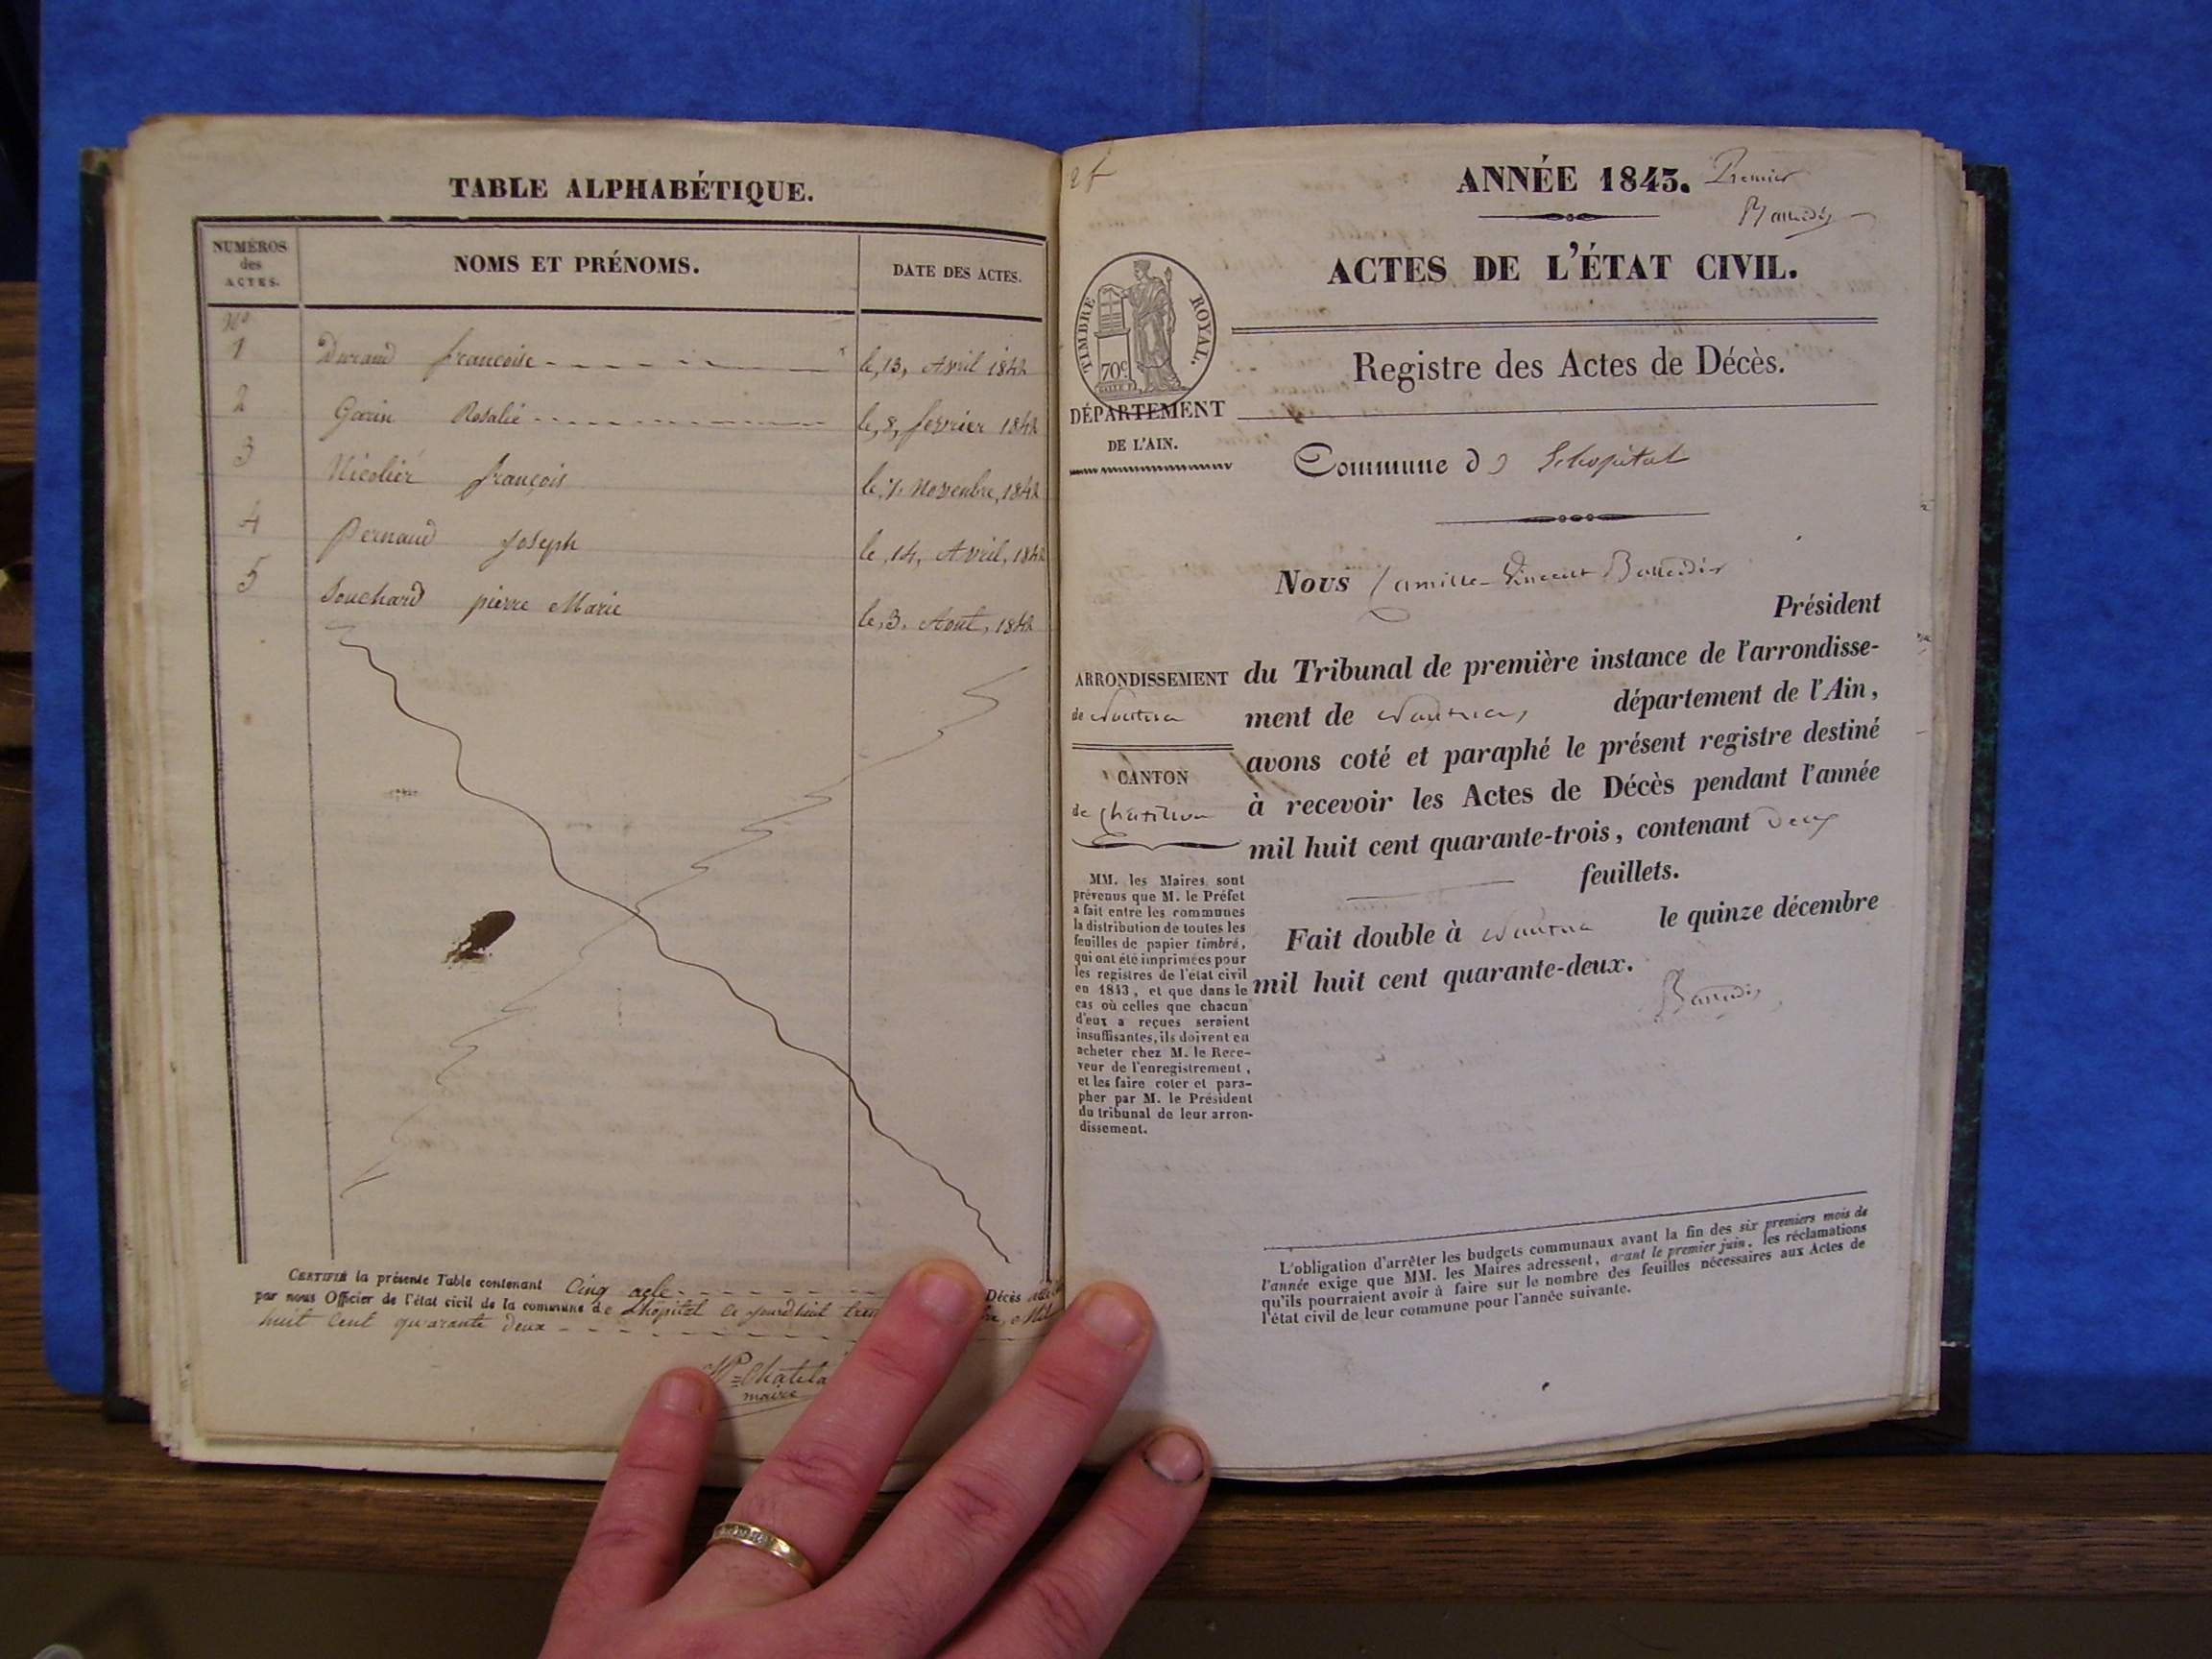 TABLE ALPHABÉTIQUE.
NUMÉROS des ACTES.
NOMS ET PRÉNOMS.
DATE DES ACTES.
N°
1 Durand françoise le, 13, Avril 1842
2 Garin Rosalie le, 8, février 1842
3 Nicolier françois le, 7, Novembre, 1842
4 Pernaud Joseph le, 14, Avril, 1842
5 Souchard pierre Marie le, 3. Aout, 1842
CERTIFIÉ la présente Table contenant Cinq acte Décès
par nous Officier de l'état civil de la commune de Lhôpital Ce jourd'huit
huit Cent quarante deux
maire
2 f
ANNÉE 1843. Premier
ACTES DE L'ÉTAT CIVIL.
TIMBRE ROYAL.
70c
Registre des Actes de Décès.
DÉPARTEMENT
DE L'AIN.
Commune de Lhopital
Nous Camille Vincent
Président
ARRONDISSEMENT
de Nantua
du Tribunal de première instance de l'arrondisse-
ment de Nantua, département de l'Ain,
avons coté et paraphé le présent registre destiné
à recevoir les Actes de Décès pendant l'année
mil huit cent quarante-trois, contenant deux
feuillets.
Fait double à Nantua le quinze décembre
mil huit cent quarante-deux.
CANTON
de Chatillon
MM. les Maires sont
prévenus que M. le Préfet
a fait entre les communes
la distribution de toutes les
feuilles de papier timbré,
qui ont été imprimées pour
les registres de l'état civil
en 1843, et que dans le
cas où celles que chacun
d'eux a reçues seraient
insuffisantes, ils doivent en
acheter chez M. le Rece-
veur de l'enregistrement,
et les faire coter et para-
pher par M. le Président
du tribunal de leur arron-
dissement.
L'obligation d'arrêter les budgets communaux avant la fin des six premiers mois de
l'année exige que MM. les Maires adressent, avant le premier juin, les réclamations
qu'ils pourraient avoir à faire sur le nombre des feuilles nécessaires aux Actes de
l'état civil de leur commune pour l'année suivante.